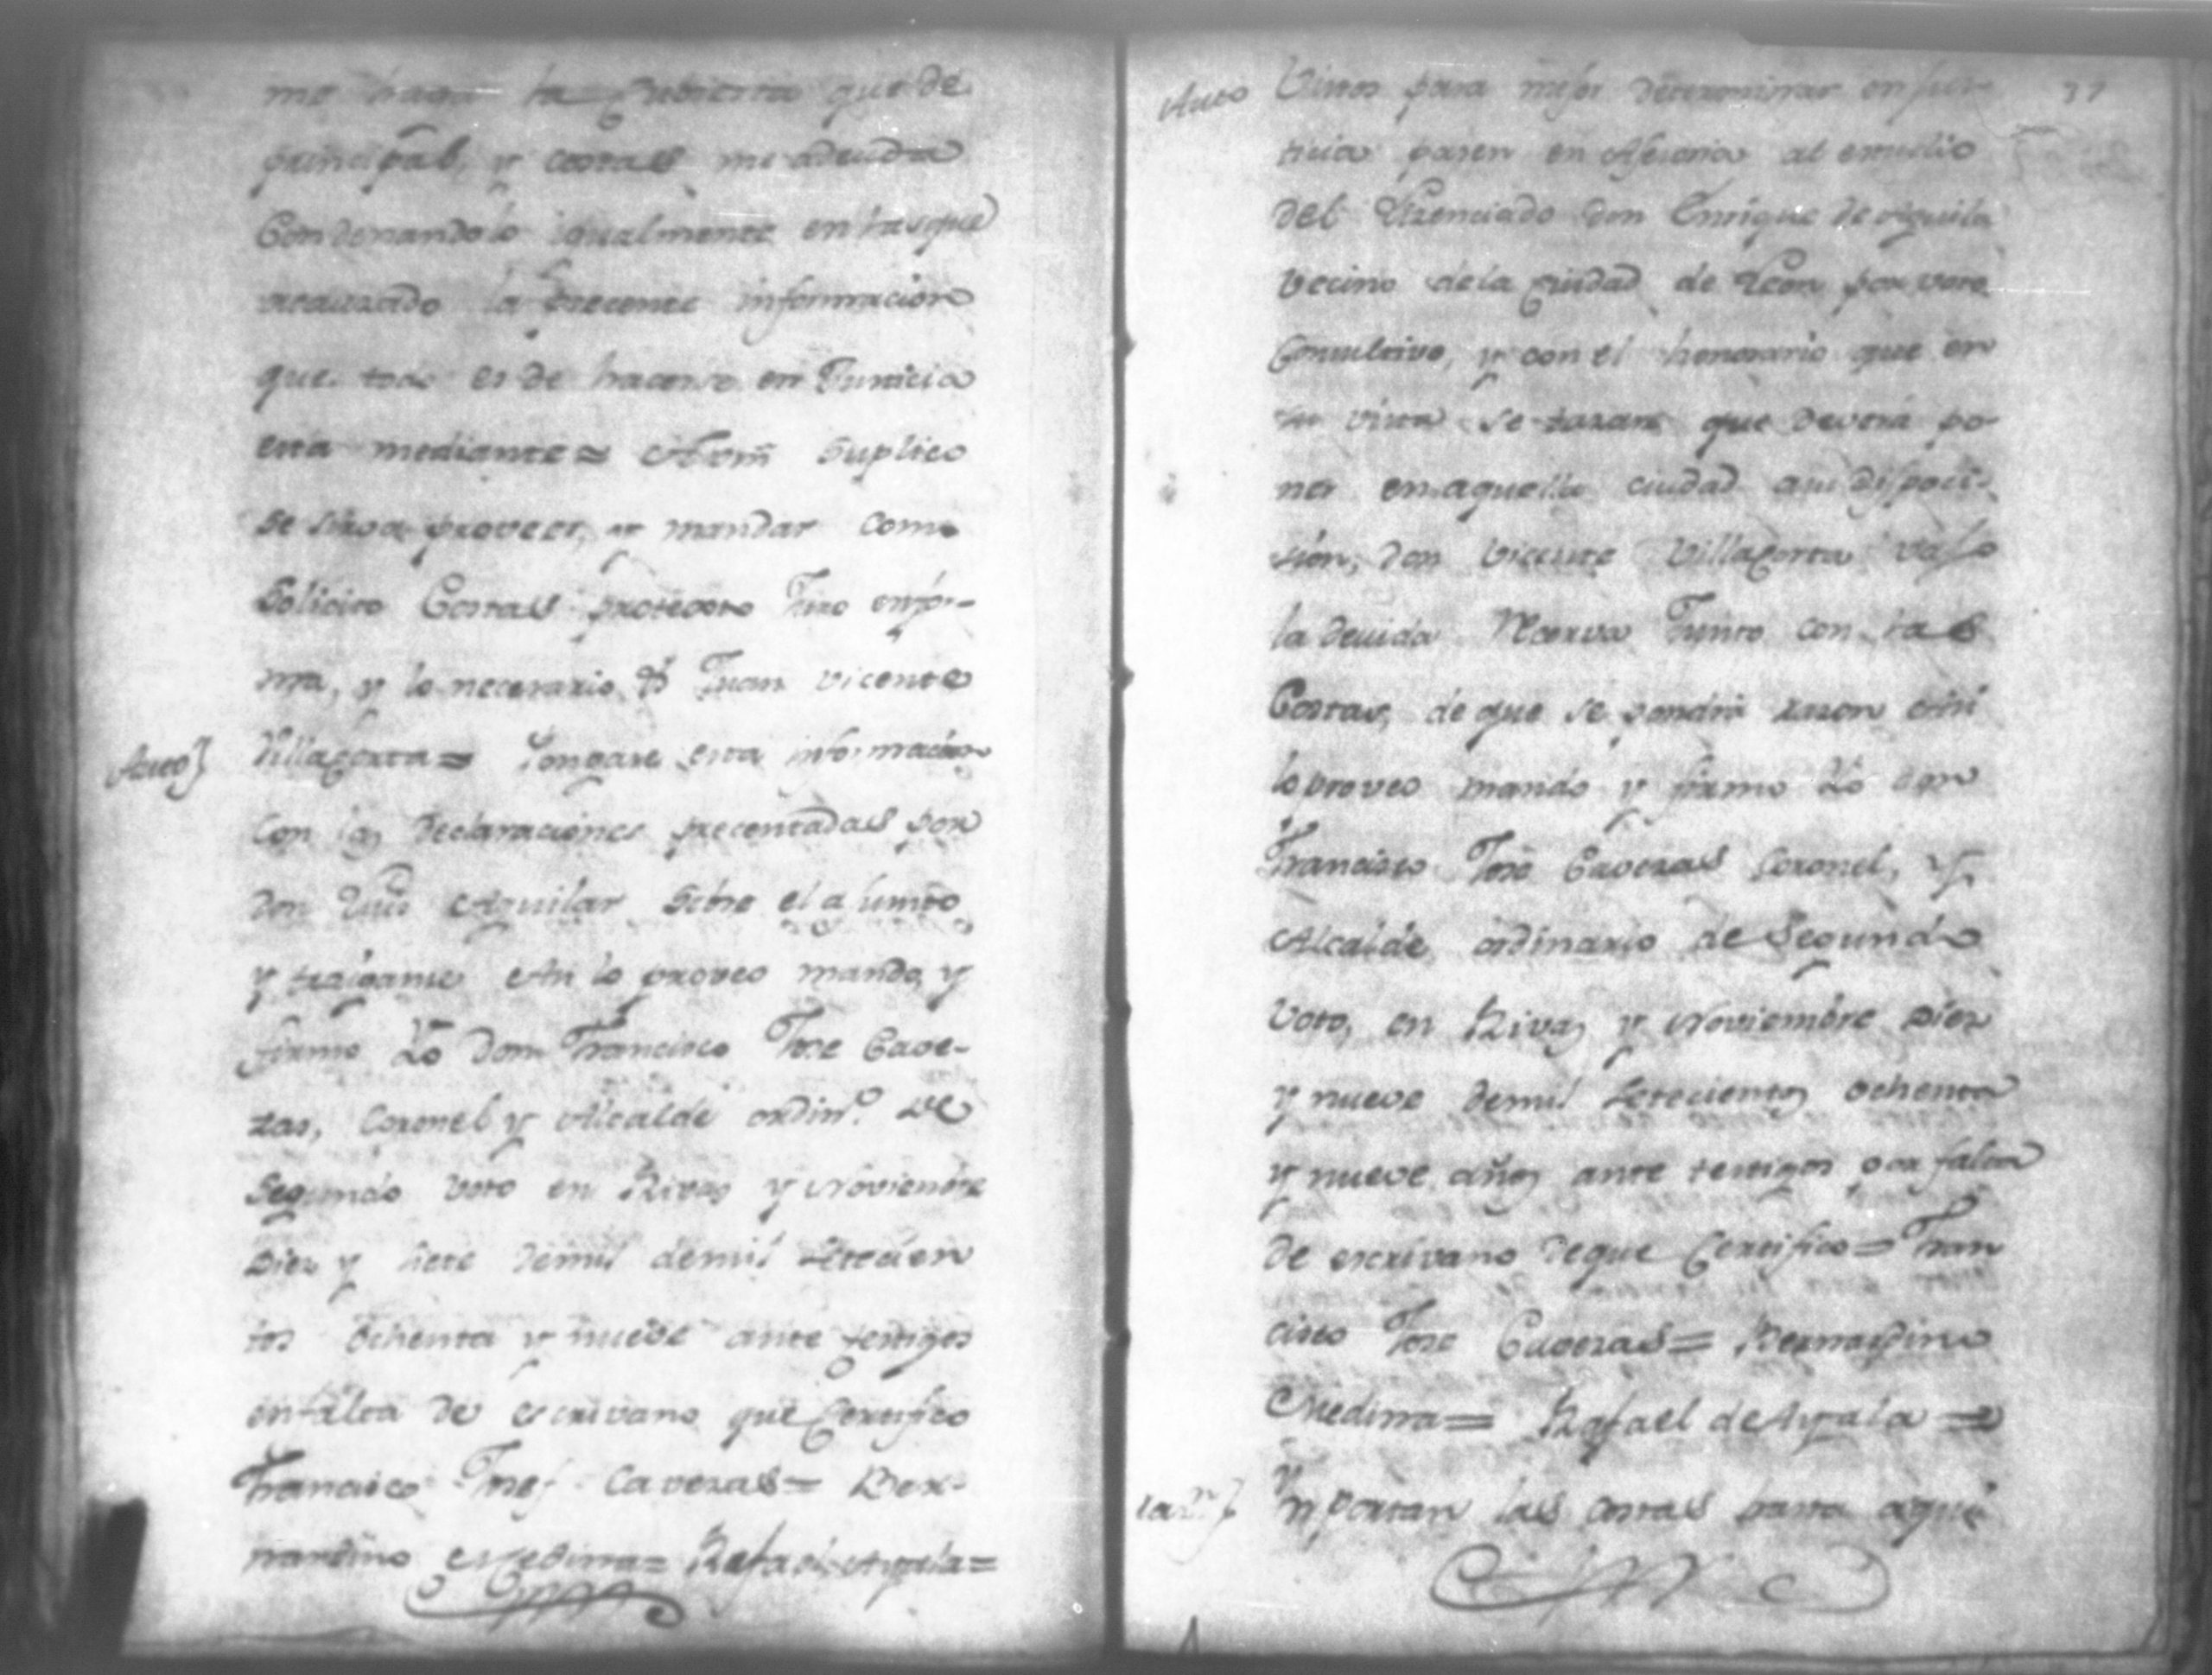 me haga la cubierta que de
principal, y costas me adeuda
Condenandolo igualmente en las que
acauzado la precente informacion
que todo es de hacerse en Justicia
esta mediante = Avm̃ suplico
se sirva proveer, y mandar como
solicito Costas protexto Juro enfor-
ma, y lo necerario D.n Juan Vicente
Auto} Villacorta = Pongase esta informacion
con las declaraciones precentadas por
don Luis Aguilar sobre el asumto
y traigame Asi lo proveo mando, y
firmo Yo don Francisco Jose Cave-
zas, Coronel y Alcalde ordin.o de
Segundo Voto en Rivas y Noviembre
Diez y siete demil demil Setecien
tos ochenta y nueve ante testigos
enfalta de escrivano que Certifico
Francisco Josef Cavezas = Ber-
nardino Medina = Rafael Ayala =
37
Auto Vistos para mejor determinar en jus-
ticia pasen en Asesoria al estudio
del Lizenciado don Enrique de Aguila
vecino dela ciudad de Leon por voto
Consultivo, y con el honorario que en
su vista se tazare que deverá po-
ner en aquella ciudad asu dispoci-
sión, don Vicente Villacorta vajo
la devida Recerva Junto con las
Costas, de que se pondrá razon asi
lo proveo mando y firmo Yo don
Francisco Jose Cavezas Coronel, y
Alcalde ordinario de Segundo
Voto, en Rivas y Noviembre diez
y nueve demil Setecientos ochenta
y nueve años ante testigos por falta
de escrivano deque Certifico = Fran
cisco Jose Cavezas = Bernardino
Medina = Rafael de Ayala =
Ymportan las costas hasta aqui